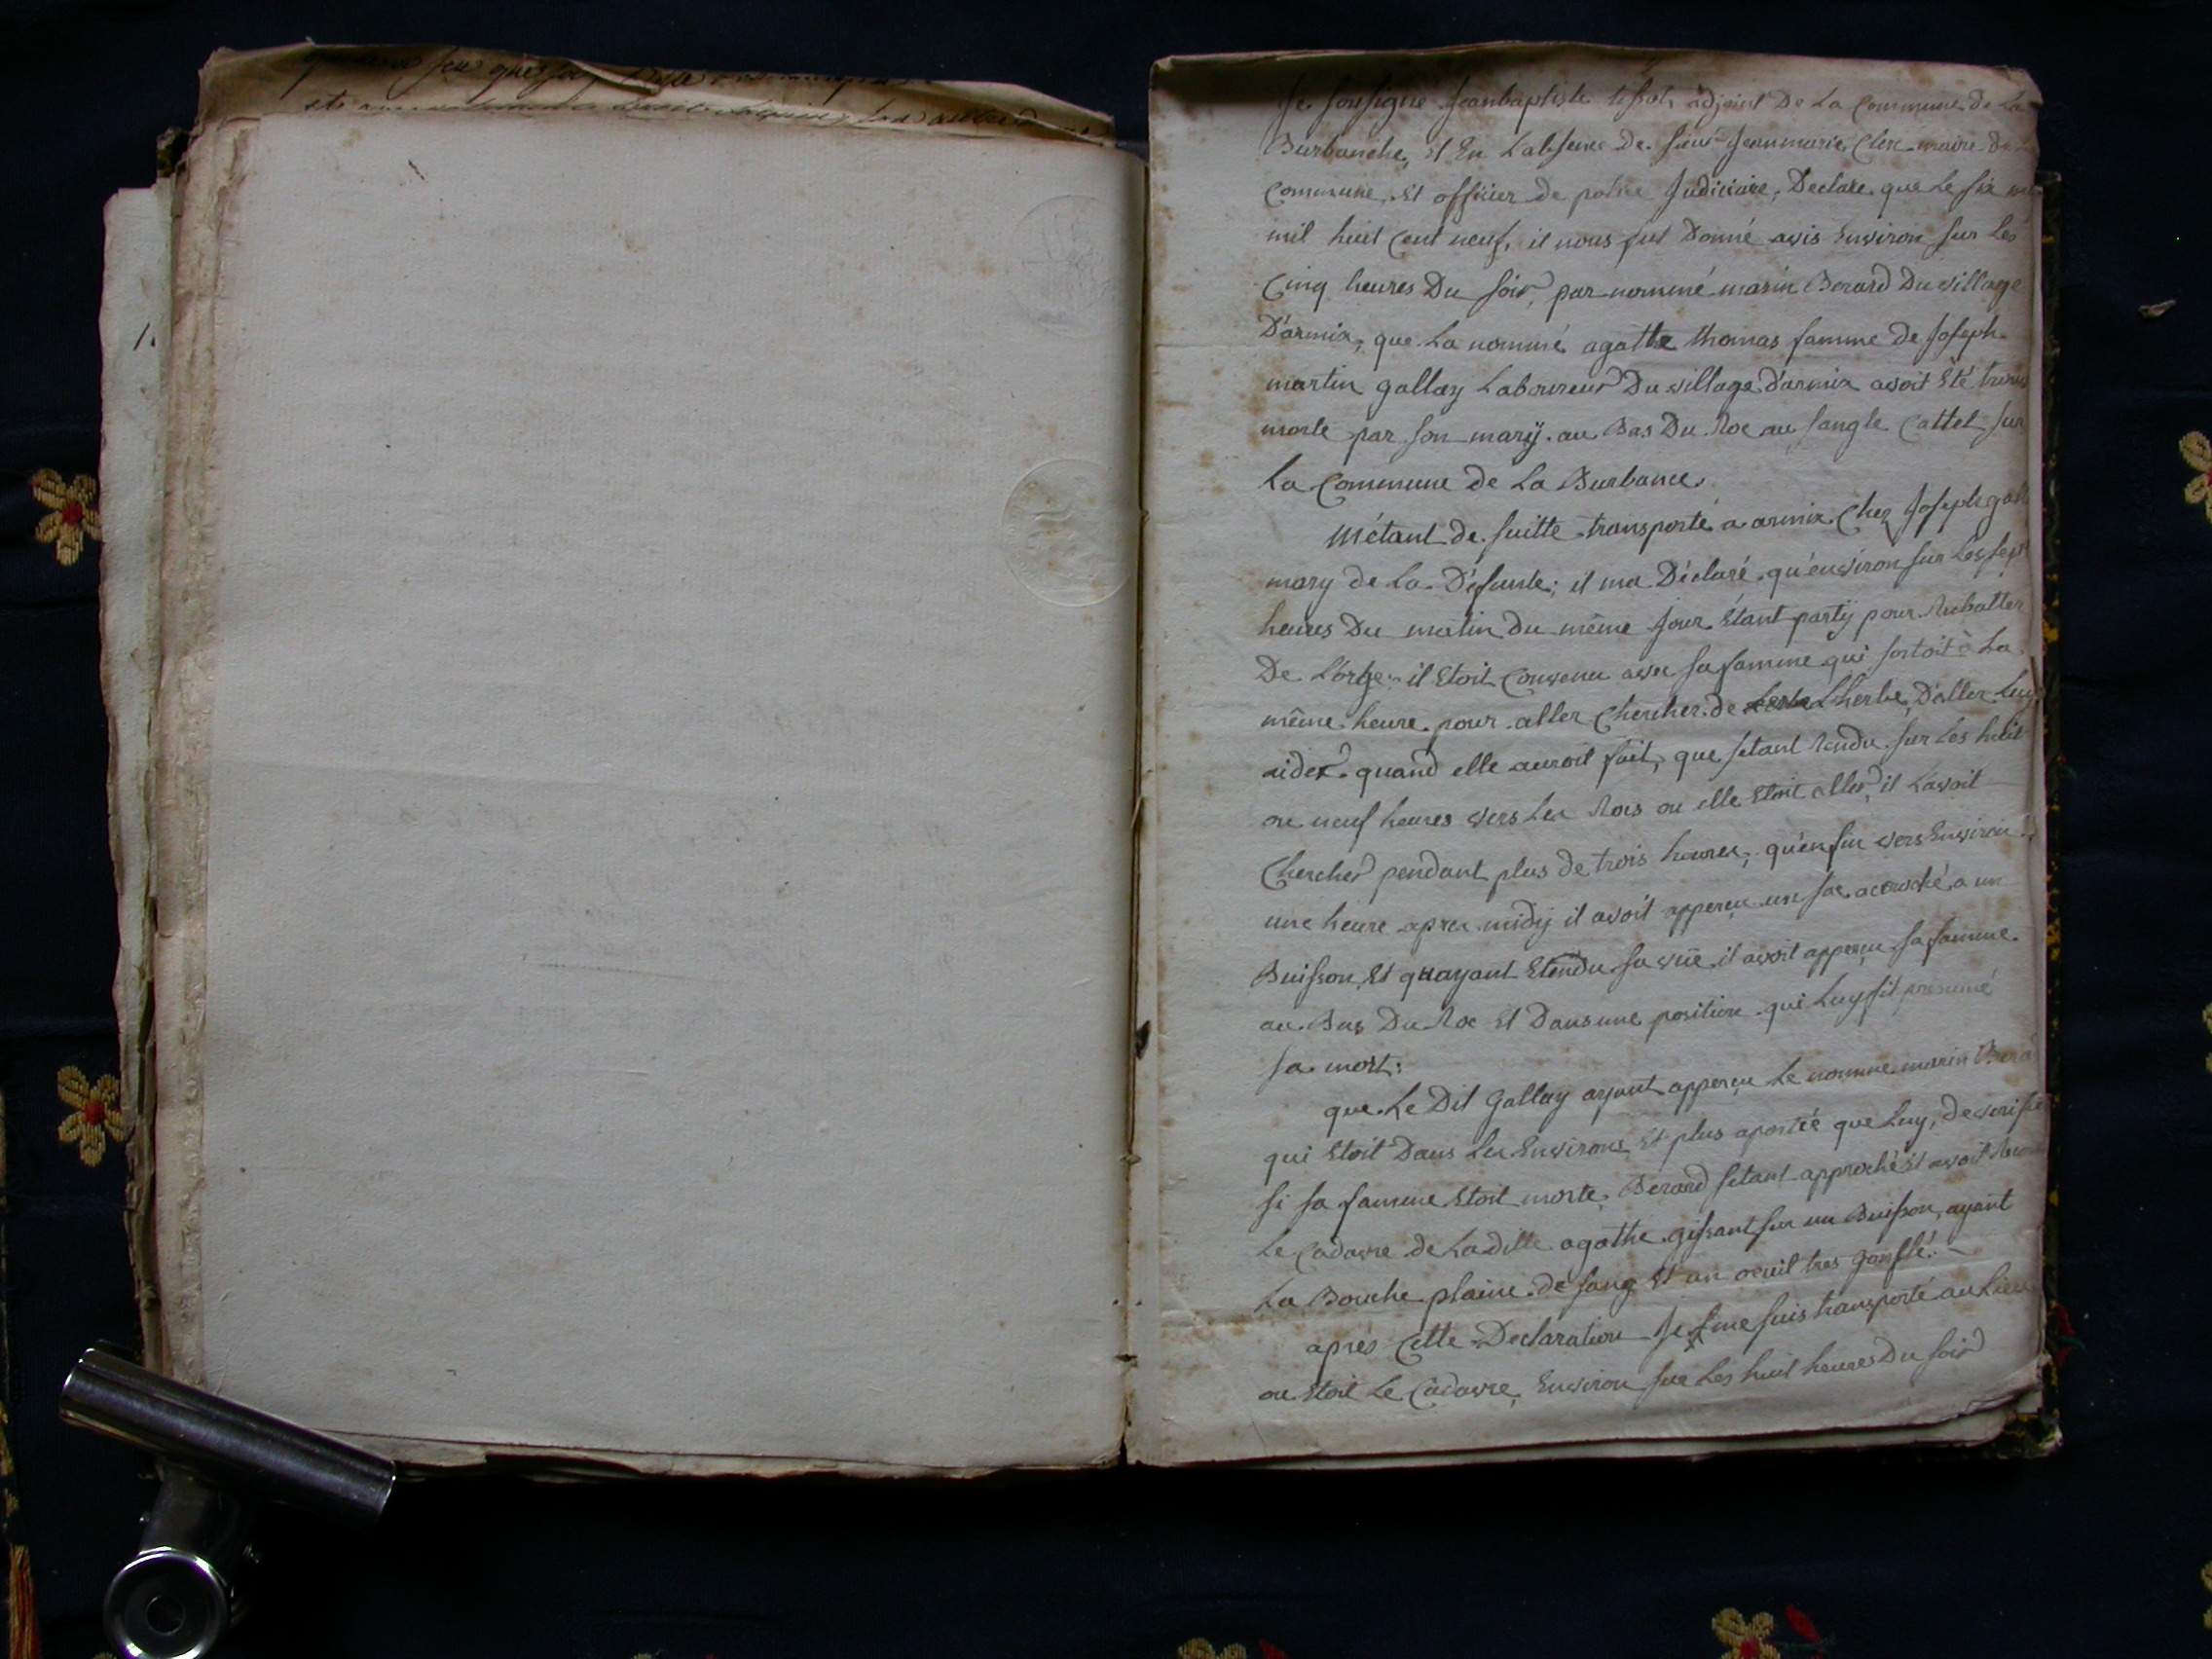 Je soussigné Jeanbaptiste tissot adjoint De La Commune de La
Burbanche, Et En Labsence De sieur Jeanmarie Clerc maire De La
Commune, Et officier de police Judiciaire, Declare que le six
mil huit Cent neuf, il nous fut Donné avis Environ sur Les
Cinq heures Du soir, par nommé marin Berard Du village
D'armix, que La nommé agathe thomas famme de Joseph
martin gallay Laboureur Du village d'armix avoit Eté trouvé
morte par son marÿ au Bas Du Roc au sangle Cattet sur
La Commune de La Burbance.
Métant de suitte transporté a armix Chez Joseph gal
mary de La Défunte; il ma Déclaré qu'environ sur Les sept
heures Du matin du même Jour Etant partÿ pour Rebatter
De L'orge, il Etoit Convenu avec sa famme qui sortoit à La
même heure pour aller Chercher de Lherbe, D'aller Luy
aider quand elle auroit fait, que setant Rendu sur Les huit
ou neuf heures vers Les Rocs ou elle Etoit allée, il Lavoit
Cherchés pendant plus de trois heures, qu'enfin vers Environ
une heure apres midÿ il avoit apperçu un sac accroché a un
Buisson, Et quayant Etendu sa vüe il avoit apperçu sa famme
au Bas Du Roc Et Dans une position qui Luy fit présumé
sa mort:
que Le Dit Gallay ayant apperçu Le nommé marin Bera
qui Etoit Dans Les Environs Et plus aportée que Luy, de verifie
si sa famme Etoit morte, Berard setant approché Et avoit
Le Cadavre de Ladille agathe gissant sur un Buisson, ayant
La Bouche plaine de sang Et un oeuil tres gonflé.
après Cette Declaration Je me suis transporté au Lieu
ou Etoit Le Cadavre, Environ sur Les huit heures Du soir